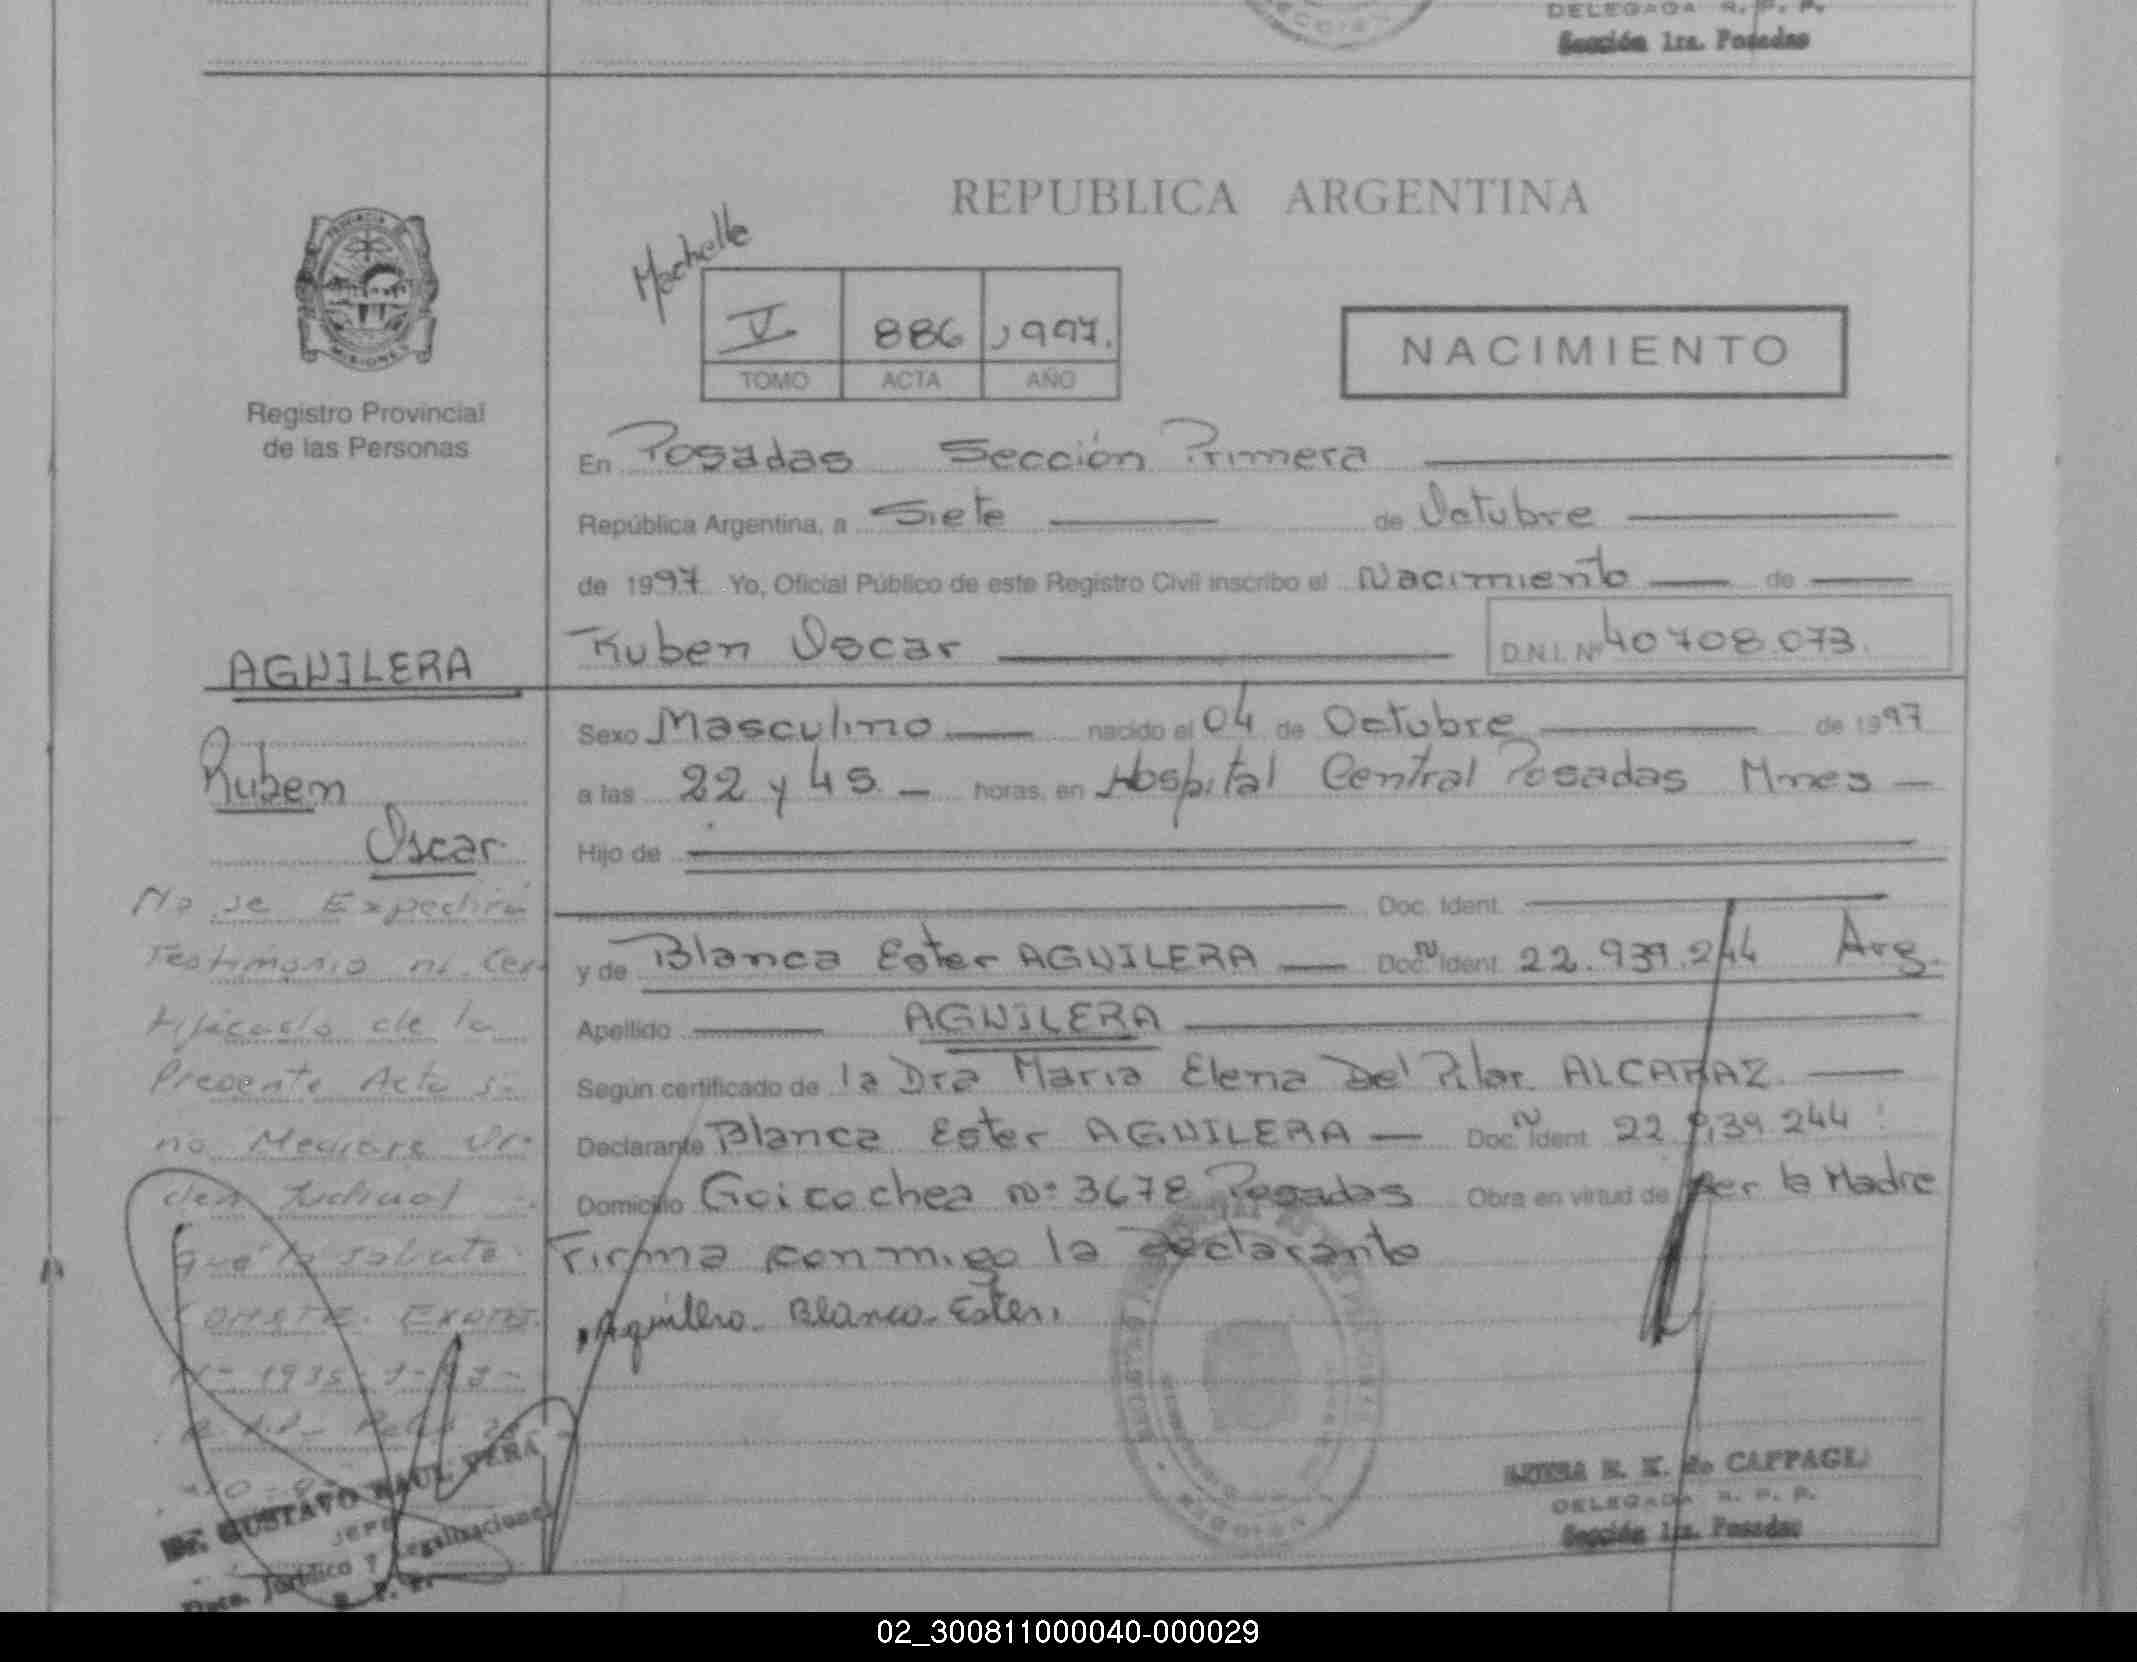 DELEGADA R. P. P.
Sección 1ra. Posadas
REPUBLICA ARGENTINA
PROVINCIA
MISIONES
Registro Provincial
de las Personas
V 886 1997.
TOMO ACTA AÑO
NACIMIENTO
En Posadas Sección Primera
República Argentina, a Siete de Octubre
de 1997 Yo, Oficial Público de este Registro Civil inscribo el Nacimiento de
Ruben Oscar D.N.I. Nº 40708.073.
AGUILERA
Ruben
Oscar
Sexo Masculino nacido el 04 de Octubre de 1997
a las 22 y 45 horas, en Hospital Central Posadas Mnes
Hijo de
Doc. Ident.
y de Blanca Ester AGUILERA Doc. Ident. 22.939.244 Arg.
Apellido AGUILERA
Según certificado de la Dra Maria Elena Del Pilar ALCARAZ
Declarante Blanca Ester AGUILERA Doc. Ident. 22 939 244
Domicilio Goicochea Nº 3678 Posadas Obra en virtud de Ser la Madre
Firma conmigo la declarante
Aguilera Blanca Ester.
No se Expedirá
Testimonio ni Cer
tificado de la
Presente Acta si
no Mediare Or-
den Judicial
que lo solicite.
CONSTE.
Dr. GUSTAVO RAUL PEÑA
JEFE
Dpto. Jurídico y Legalizaciones
R. P. P.
DELEGADA R. P. P.
Sección 1ra. Posadas
02_300811000040-000029